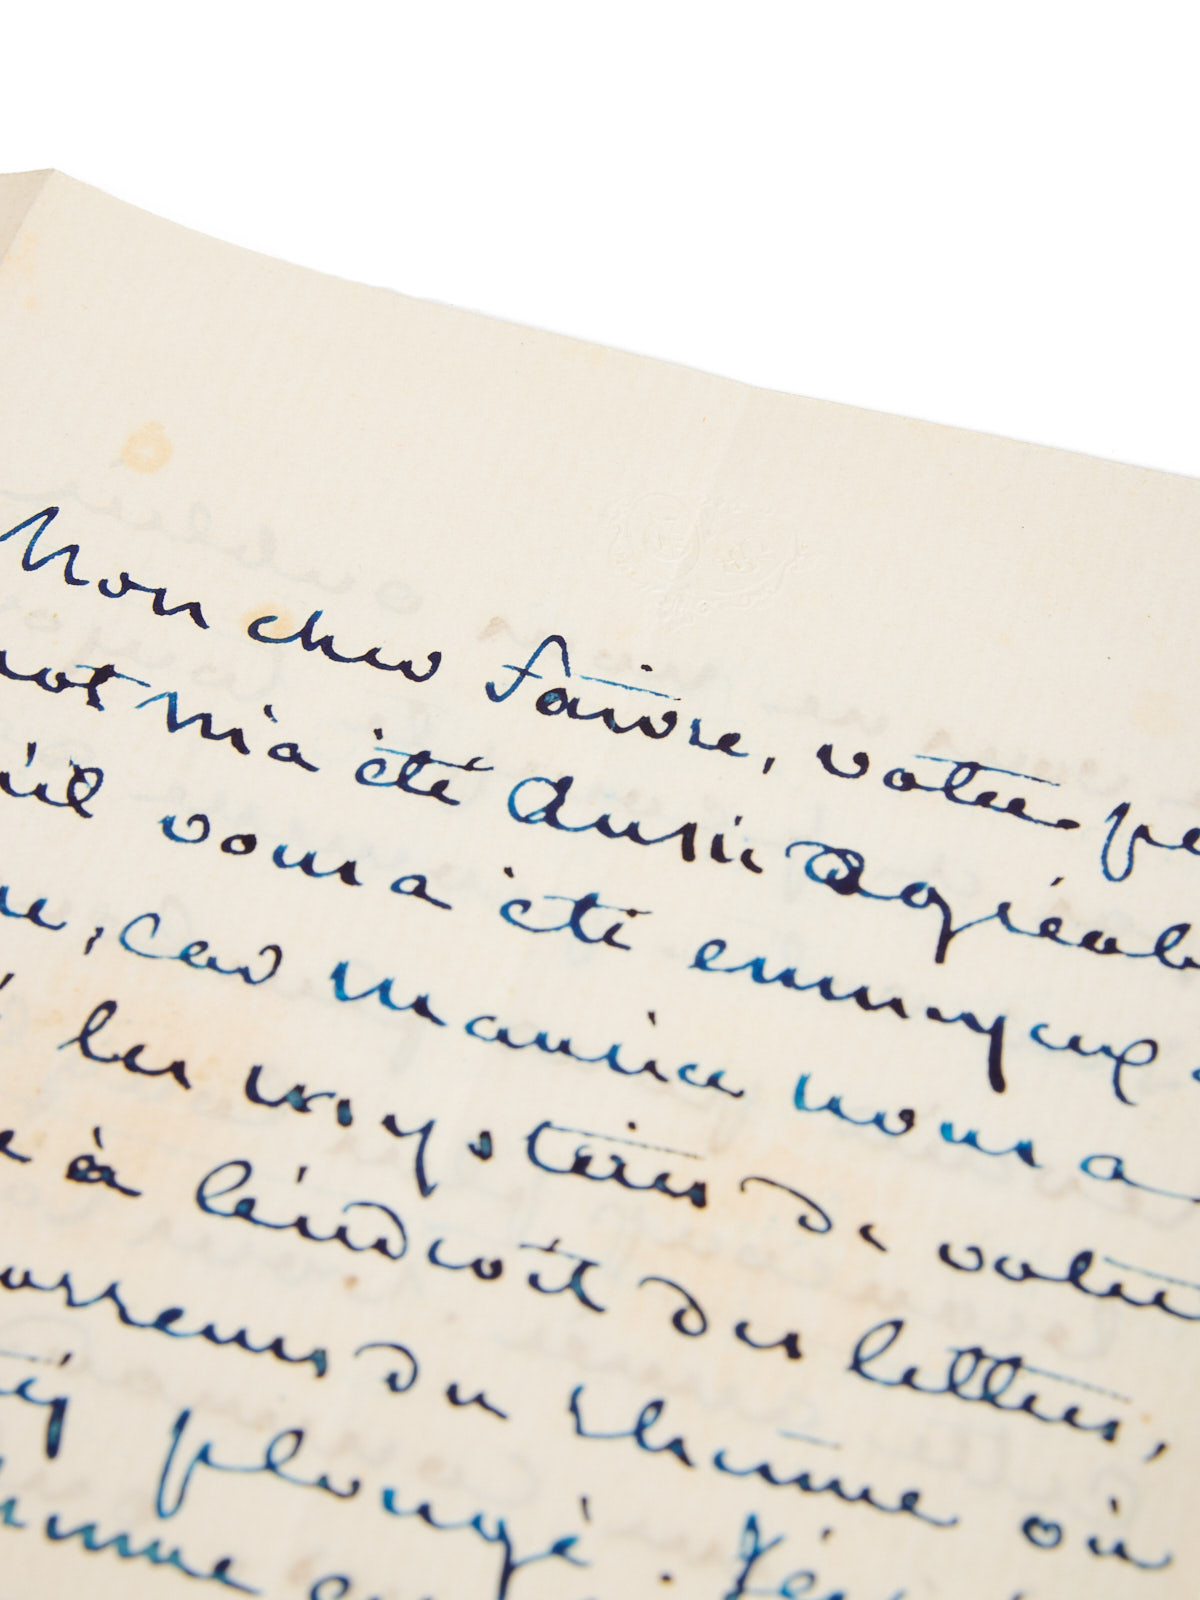 Mon cher Faivre, votre pe
mot m'a été aussi agréab
u'il vous a été ennuyeux
re, car maurice nous a
les mystères de votre
e à l'endroit des lettres,
horreurs du rhume où
plongé. J'es